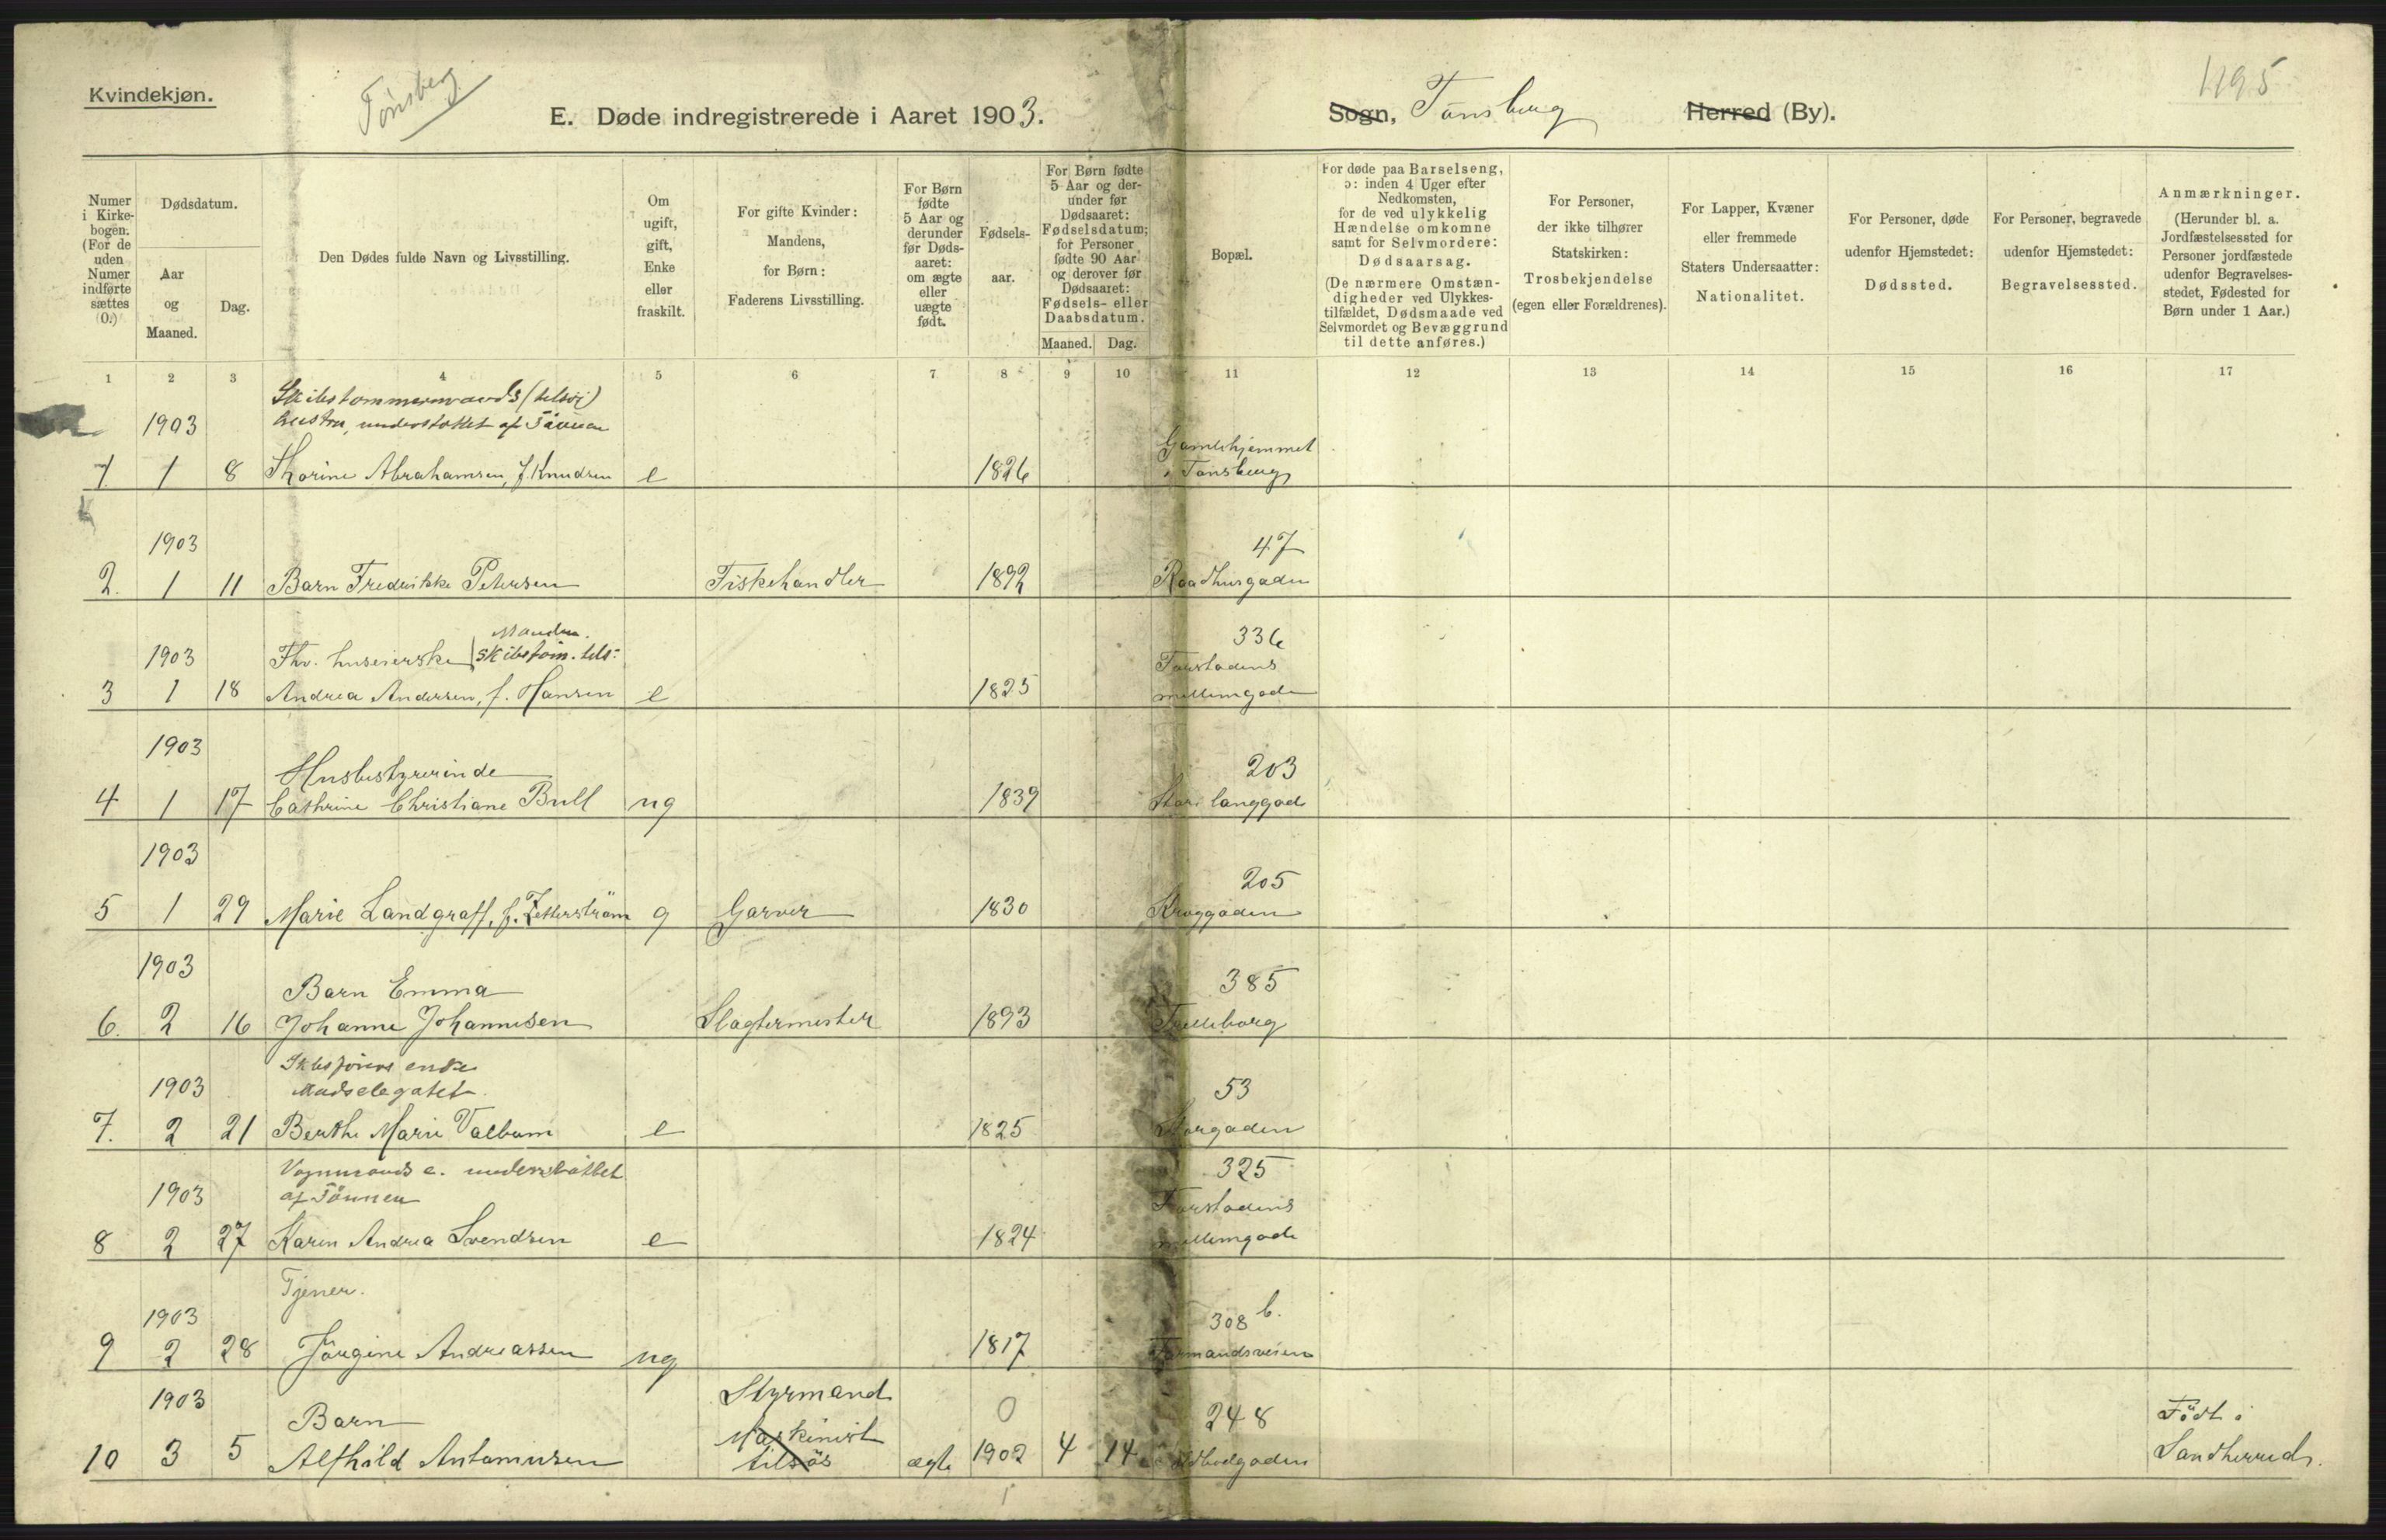 Kvindekjøn.
Tønsberg
E. Døde indregistrerede i Aaret 1903.
Sogn, Tønsberg Herred (By).
1195
Numer i Kirkebogen. (For de uden Numer indførte sættes 0.)
Dødsdatum.
Aar og Maaned.
Dag.
Den Dødes fulde Navn og Livsstilling.
Om ugift, gift, Enke eller fraskilt.
For gifte Kvinder: Mandens, for Børn: Faderens Livsstilling.
For Børn fødte 5 Aar og derunder før Dødsaaret: om ægte eller uægte født.
Fødselsaar.
For Børn fødte 5 Aar og derunder før Dødsaaret: Fødselsdatum; for Personer fødte 90 Aar og derover før Dødsaaret: Fødsels- eller Daabsdatum.
Maaned. Dag.
Bopæl.
For døde paa Barselseng, ɔ: inden 4 Uger efter Nedkomsten, for de ved ulykkelig Hændelse omkomne samt for Selvmordere: Dødsaarsag. (De nærmere Omstændigheder ved Ulykkestilfældet, Dødsmaade ved Selvmordet og Bevæggrund til dette anføres.)
For Personer, der ikke tilhører Statskirken: Trosbekjendelse (egen eller Forældrenes).
For Lapper, Kvæner eller fremmede Staters Undersaatter: Nationalitet.
For Personer, døde udenfor Hjemstedet: Dødssted.
For Personer, begravede udenfor Hjemstedet: Begravelsessted.
Anmærkninger. (Herunder bl. a. Jordfæstelsessted for Personer jordfæstede udenfor Begravelsesstedet, Fødested for Børn under 1 Aar.)
1 2 3 4 5 6 7 8 9 10 11 12 13 14 15 16 17
Skibstømmermands (tilsøs)
1903 hustru, understøttet af Tønnen Gamlehjemmet
1 1 8 Thorine Abrahamsen, f. Knudsen e 1826 i Tønsberg
1903 47
2. 1 11 Barn Fredrikke Petersen Fiskehandler 1892 Raadhusgaden
Manden. 336
1903 Fhv. huseierske skibstøm. tils: Forstadens
3 1 18 Andrea Andersen, f. Hansen e 1825 mellemgade
1903 Husbestyrerinde 203
4 1 17 Cathrine Christiane Bull ug 1839 Store langgade
1903 205
5 1 29 Marie Landgraff, f. Zetterstrøm g Garver 1830 Kroggaden
1903 Barn Emma 385
6. 2 16 Johanne Johannesen Slagtermester 1893 Trælleborg
Skbsførers enke
1903 Madselegatet. 53
7. 2 21 Berthe Marie Valbum e 1825 Storgaden
Vognmands e. understøttet 325
1903 af Tønnen Forstadens
8 2 27 Karen Andrea Svendsen e 1824 mellemgade
Tjener.
1903 308 b.
9 2 28 Jørgine Andreassen ug 1817 Farmandsveien
1903 Styrmand 0
Barn Maskinist 248 Født i
10 3 5 Alfhild Antonisen tilsøs ægte 1902 4 14 Toldbodgaden Sandherred.